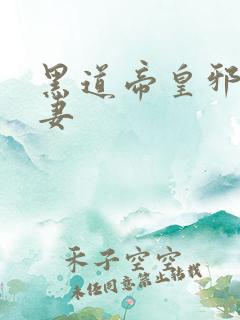 黑道帝皇邪
妻
禾子空空
未经同意禁止转载